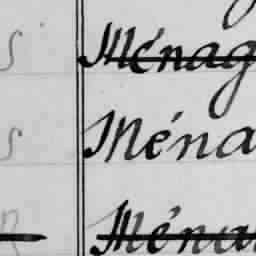 s Ménag
s Ména
Ména